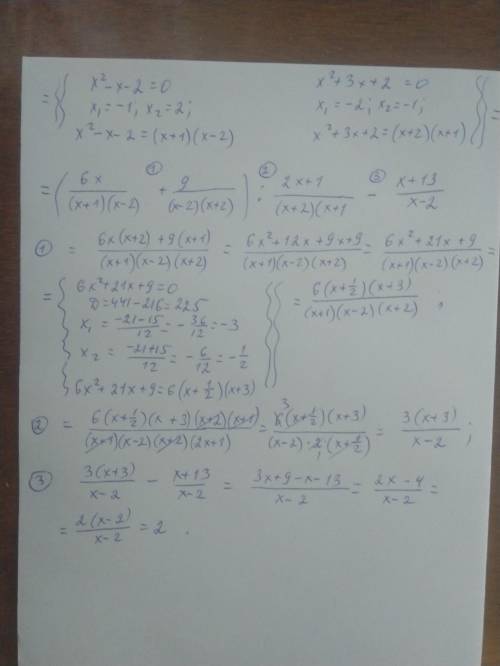 = { x² - x - 2 = 0
x₁ = -1; x₂ = 2;
x² - x - 2 = (x+1)(x-2)
x² + 3x + 2 = 0
x₁ = -2; x₂ = -1;
x² + 3x + 2 = (x+2)(x+1) } =
= ( 6x/((x+1)(x-2)) +① 9/((x-2)(x+2)) ) :② (2x+1)/((x+2)(x+1) -③ (x+13)/(x-2)
① = (6x(x+2) + 9(x+1))/((x+1)(x-2)(x+2)) = (6x²+12x+9x+9)/((x+1)(x-2)(x+2)) = (6x²+21x+9)/((x+1)(x-2)(x+2)) =
= { 6x²+21x+9=0
D = 441 - 216 = 225
x₁ = (-21-15)/12 = -36/12 = -3
x₂ = (-21+15)/12 = -6/12 = -1/2
6x²+21x+9 = 6(x+1/2)(x+3) }
= 6(x+1/2)(x+3)/((x+1)(x-2)(x+2)) ;
② = 6(x+1/2)(x+3)(x+2)(x+1)/((x+1)(x-2)(x+2)(2x+1)) = 6 3(x+1/2)(x+3)/((x-2)·2 1(x+1/2)) = 3(x+3)/(x-2) ;
③ 3(x+3)/(x-2) - (x+13)/(x-2) = (3x+9-x-13)/(x-2) = (2x-4)/(x-2) =
= 2(x-2)/(x-2) = 2 .